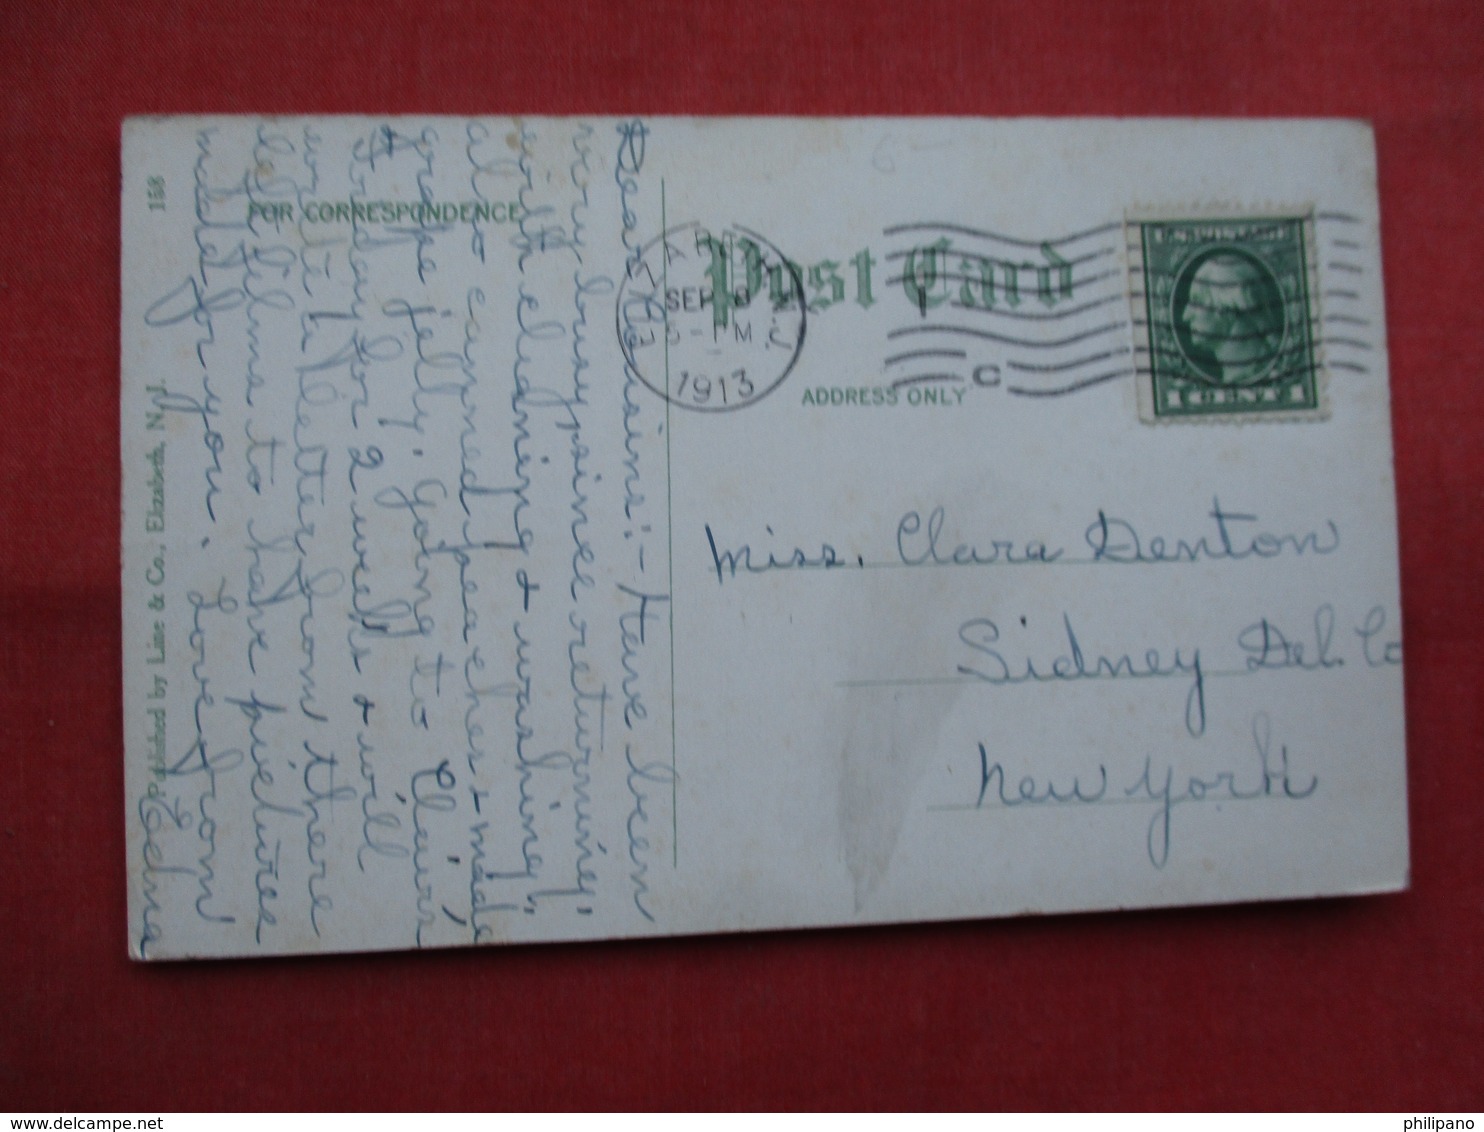 FOR CORRESPONDENCE
Post Card
ADDRESS ONLY
158
Published by Line & Co., Elizabeth, N. J.
SEP 8
5-PM
1913
C
1 CENT 1
Dear Cousins:- Have been
very busy since returning,
with cleaning & washing,
also canned peaches & made
grape jelly. Going to Clair's
Friday for 2 weeks & will
write a letter from there
left films to have pictures
made for you. Love from
Edna
Miss. Clara Denton
Sidney Del. Co
New York
philipano
delcampe.net